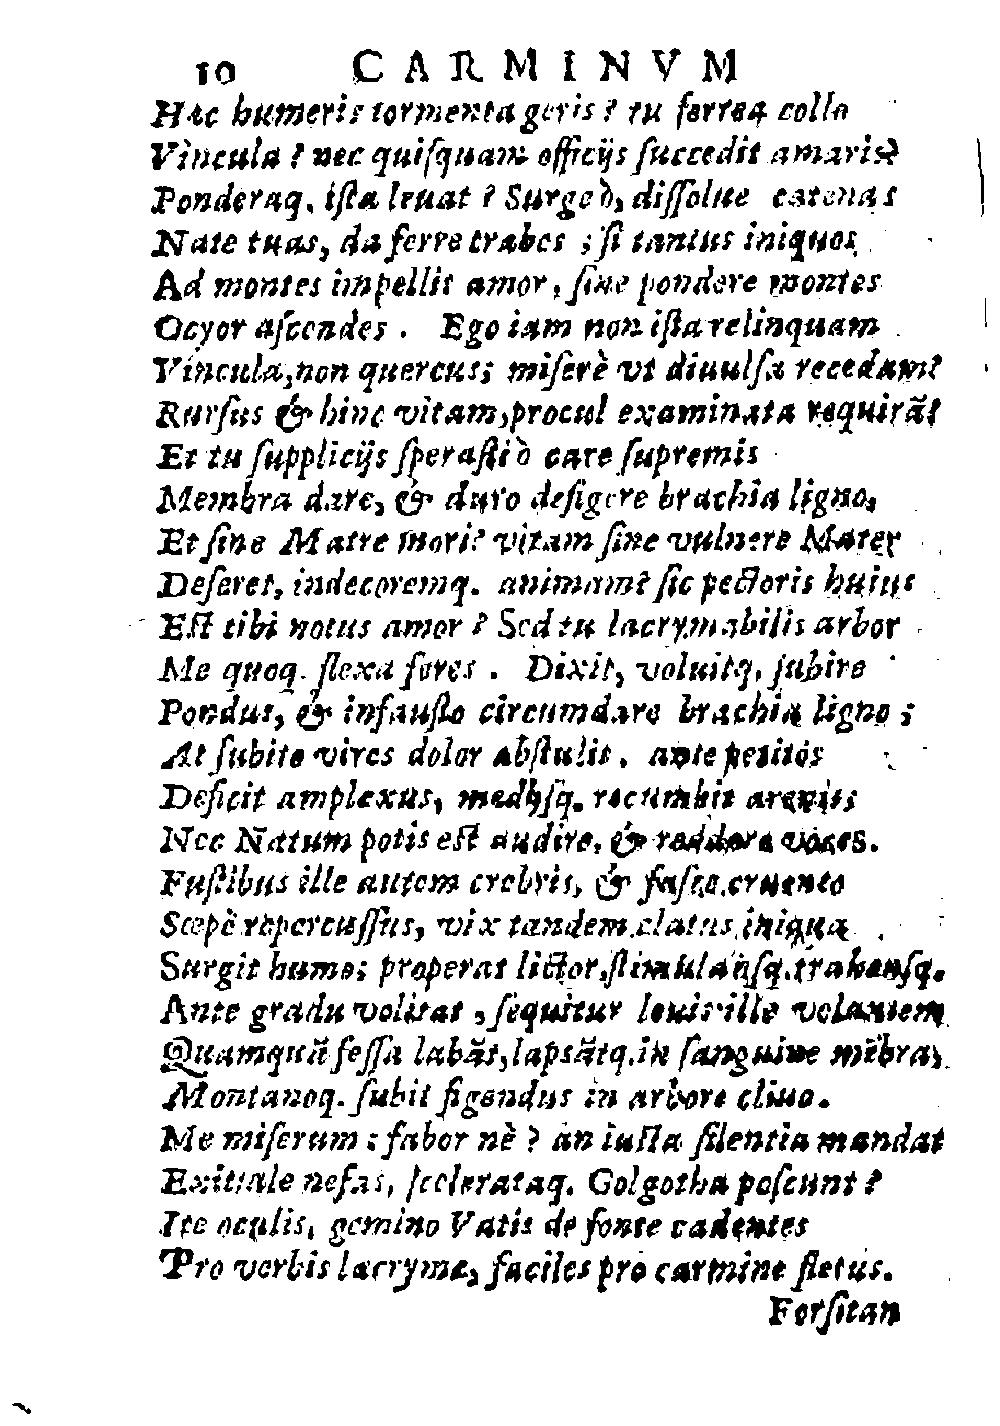 10 CARMINVM
Hæc humeris tormenta geris? tu ferrea collo
Vincula? nec quiſquam officijs ſuccedit amaris?
Ponderaq. iſta leuat? Surge ò, diſſolue catenas
Nate tuas, da ferre trabes; ſi tantus iniquos
Ad montes impellit amor, ſine pondere montes
Ocyor aſcendes. Ego iam non iſta relinquam
Vincula, non quercus; miſerè vt diuulſa recedam?
Rurſus & hinc vitam, procul exanimata requirã?
Et tu ſupplicijs ſperaſti ò care ſupremis
Membra dare, & duro defigere brachia ligno,
Et ſine Matre mori? vitam ſine vulnere Mater
Deſeret, indecoremq. animam? ſic pectoris huius
Eſt tibi notus amor? Sed tu lacrymabilis arbor
Me quoq. flexa feres. Dixit, voluitq. ſubire
Pondus, & infauſto circumdare brachia ligno;
At ſubito vires dolor abſtulit. ante petitos
Deficit amplexus, medijſq. recumbit arenis
Nec Natum potis eſt audire, & reddere voces.
Fuſtibus ille autem crebris, & faſce cruento
Sœpè repercuſſus, vix tandem elatus iniqua
Surgit humo; properat lictor, ſtimulanſq. trahenſq.
Ante gradu volitat, ſequitur leuis ille volantem
Quamquã feſſa labãt, lapsãtq. in ſanguine mẽbra,
Montanoq. ſubit figendus in arbore cliuo.
Me miſerum; fabor nè? an iuſta ſilentia mandat
Exitiale nefas, ſcelerataq. Golgotha poſcunt?
Ite oculis, gemino Vatis de fonte cadentes
Pro verbis lacrymæ, faciles pro carmine fletus.
Forſitan